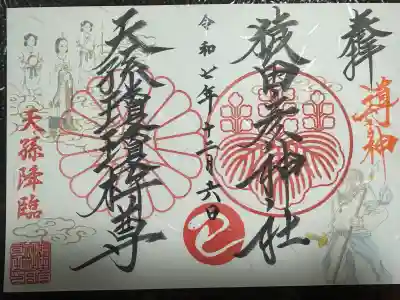 奉拝
導の神
猿田彦神社
令和七年十二月六日
天孫瓊瓊杵尊
天孫降臨